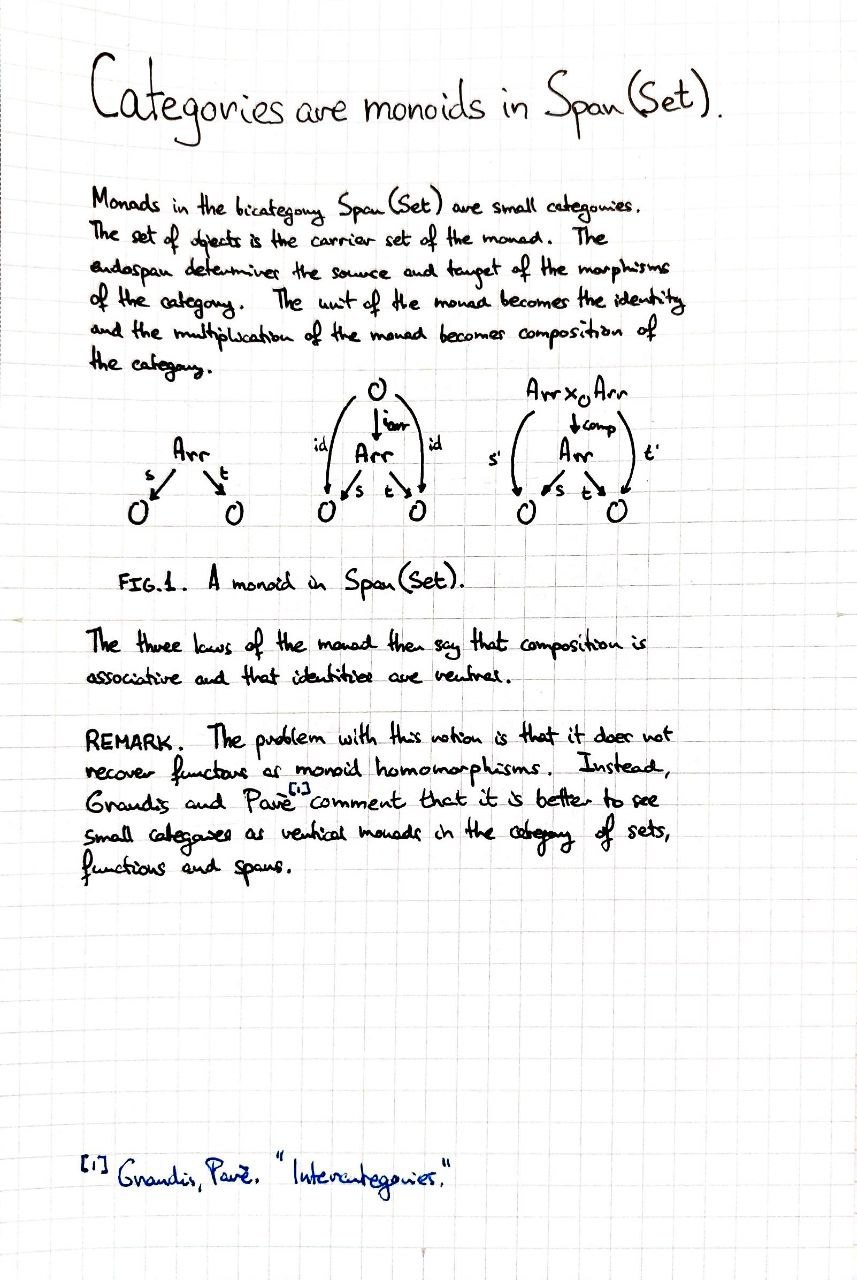 Categories are monoids in Span(Set).
Monads in the bicategory Span(Set) are small categories.
The set of objects is the carrier set of the monad. The
endospan determines the source and target of the morphisms
of the category. The unit of the monad becomes the identity
and the multiplication of the monad becomes composition of
the category.
Arr
s t
O O
O
id iarr id
Arr
s t
O O
Arr ×O Arr
s' comp t'
Arr
s t
O O
FIG.1. A monoid in Span(Set).
The three laws of the monad then say that composition is
associative and that identities are neutral.
REMARK. The problem with this notion is that it does not
recover functors as monoid homomorphisms. Instead,
Grandis and Parè[1] comment that it is better to see
small categories as vertical monads in the category of sets,
functions and spans.
[1] Grandis, Parè. "Intercategories."